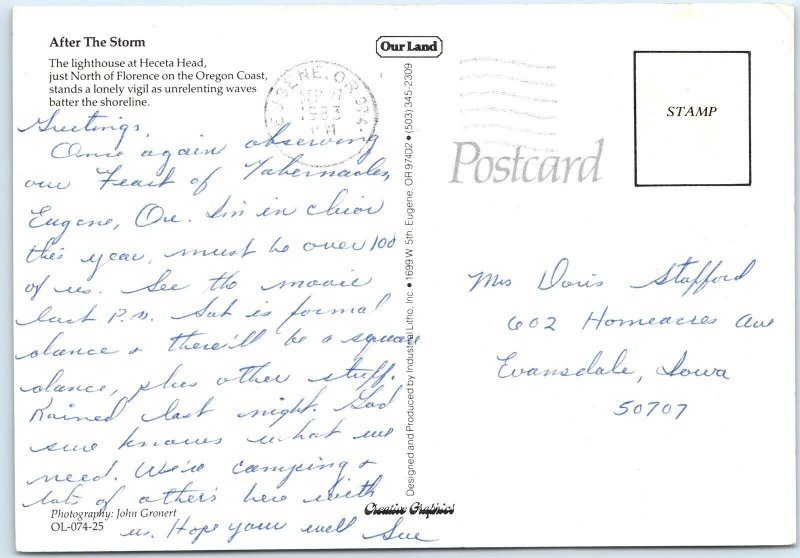 After The Storm
The lighthouse at Heceta Head,
just North of Florence on the Oregon Coast,
stands a lonely vigil as unrelenting waves
batter the shoreline.
Our Land
EUGENE, OR 974
SEP
1983
PM
Postcard
STAMP
Greetings,
Once again observing
our Feast of Tabernacles,
Eugene, Ore. I'm in choir
this year, must be over 100
of us. See the movie
last P.M. Sat is formal
dance & there'll be a square
dance, plus other stuff.
Rained last night. God
sure knows what we
need. We're camping &
lots of others here with
us. Hope your well Sue
Designed and Produced by Industrial Litho, Inc. • 1699 W. 5th, Eugene, OR 97402 • (503) 345-2309
Mrs Doris Stafford
602 Homeacres Ave
Evansdale, Iowa
50707
Photography: John Gronert
OL-074-25
Creative Graphics